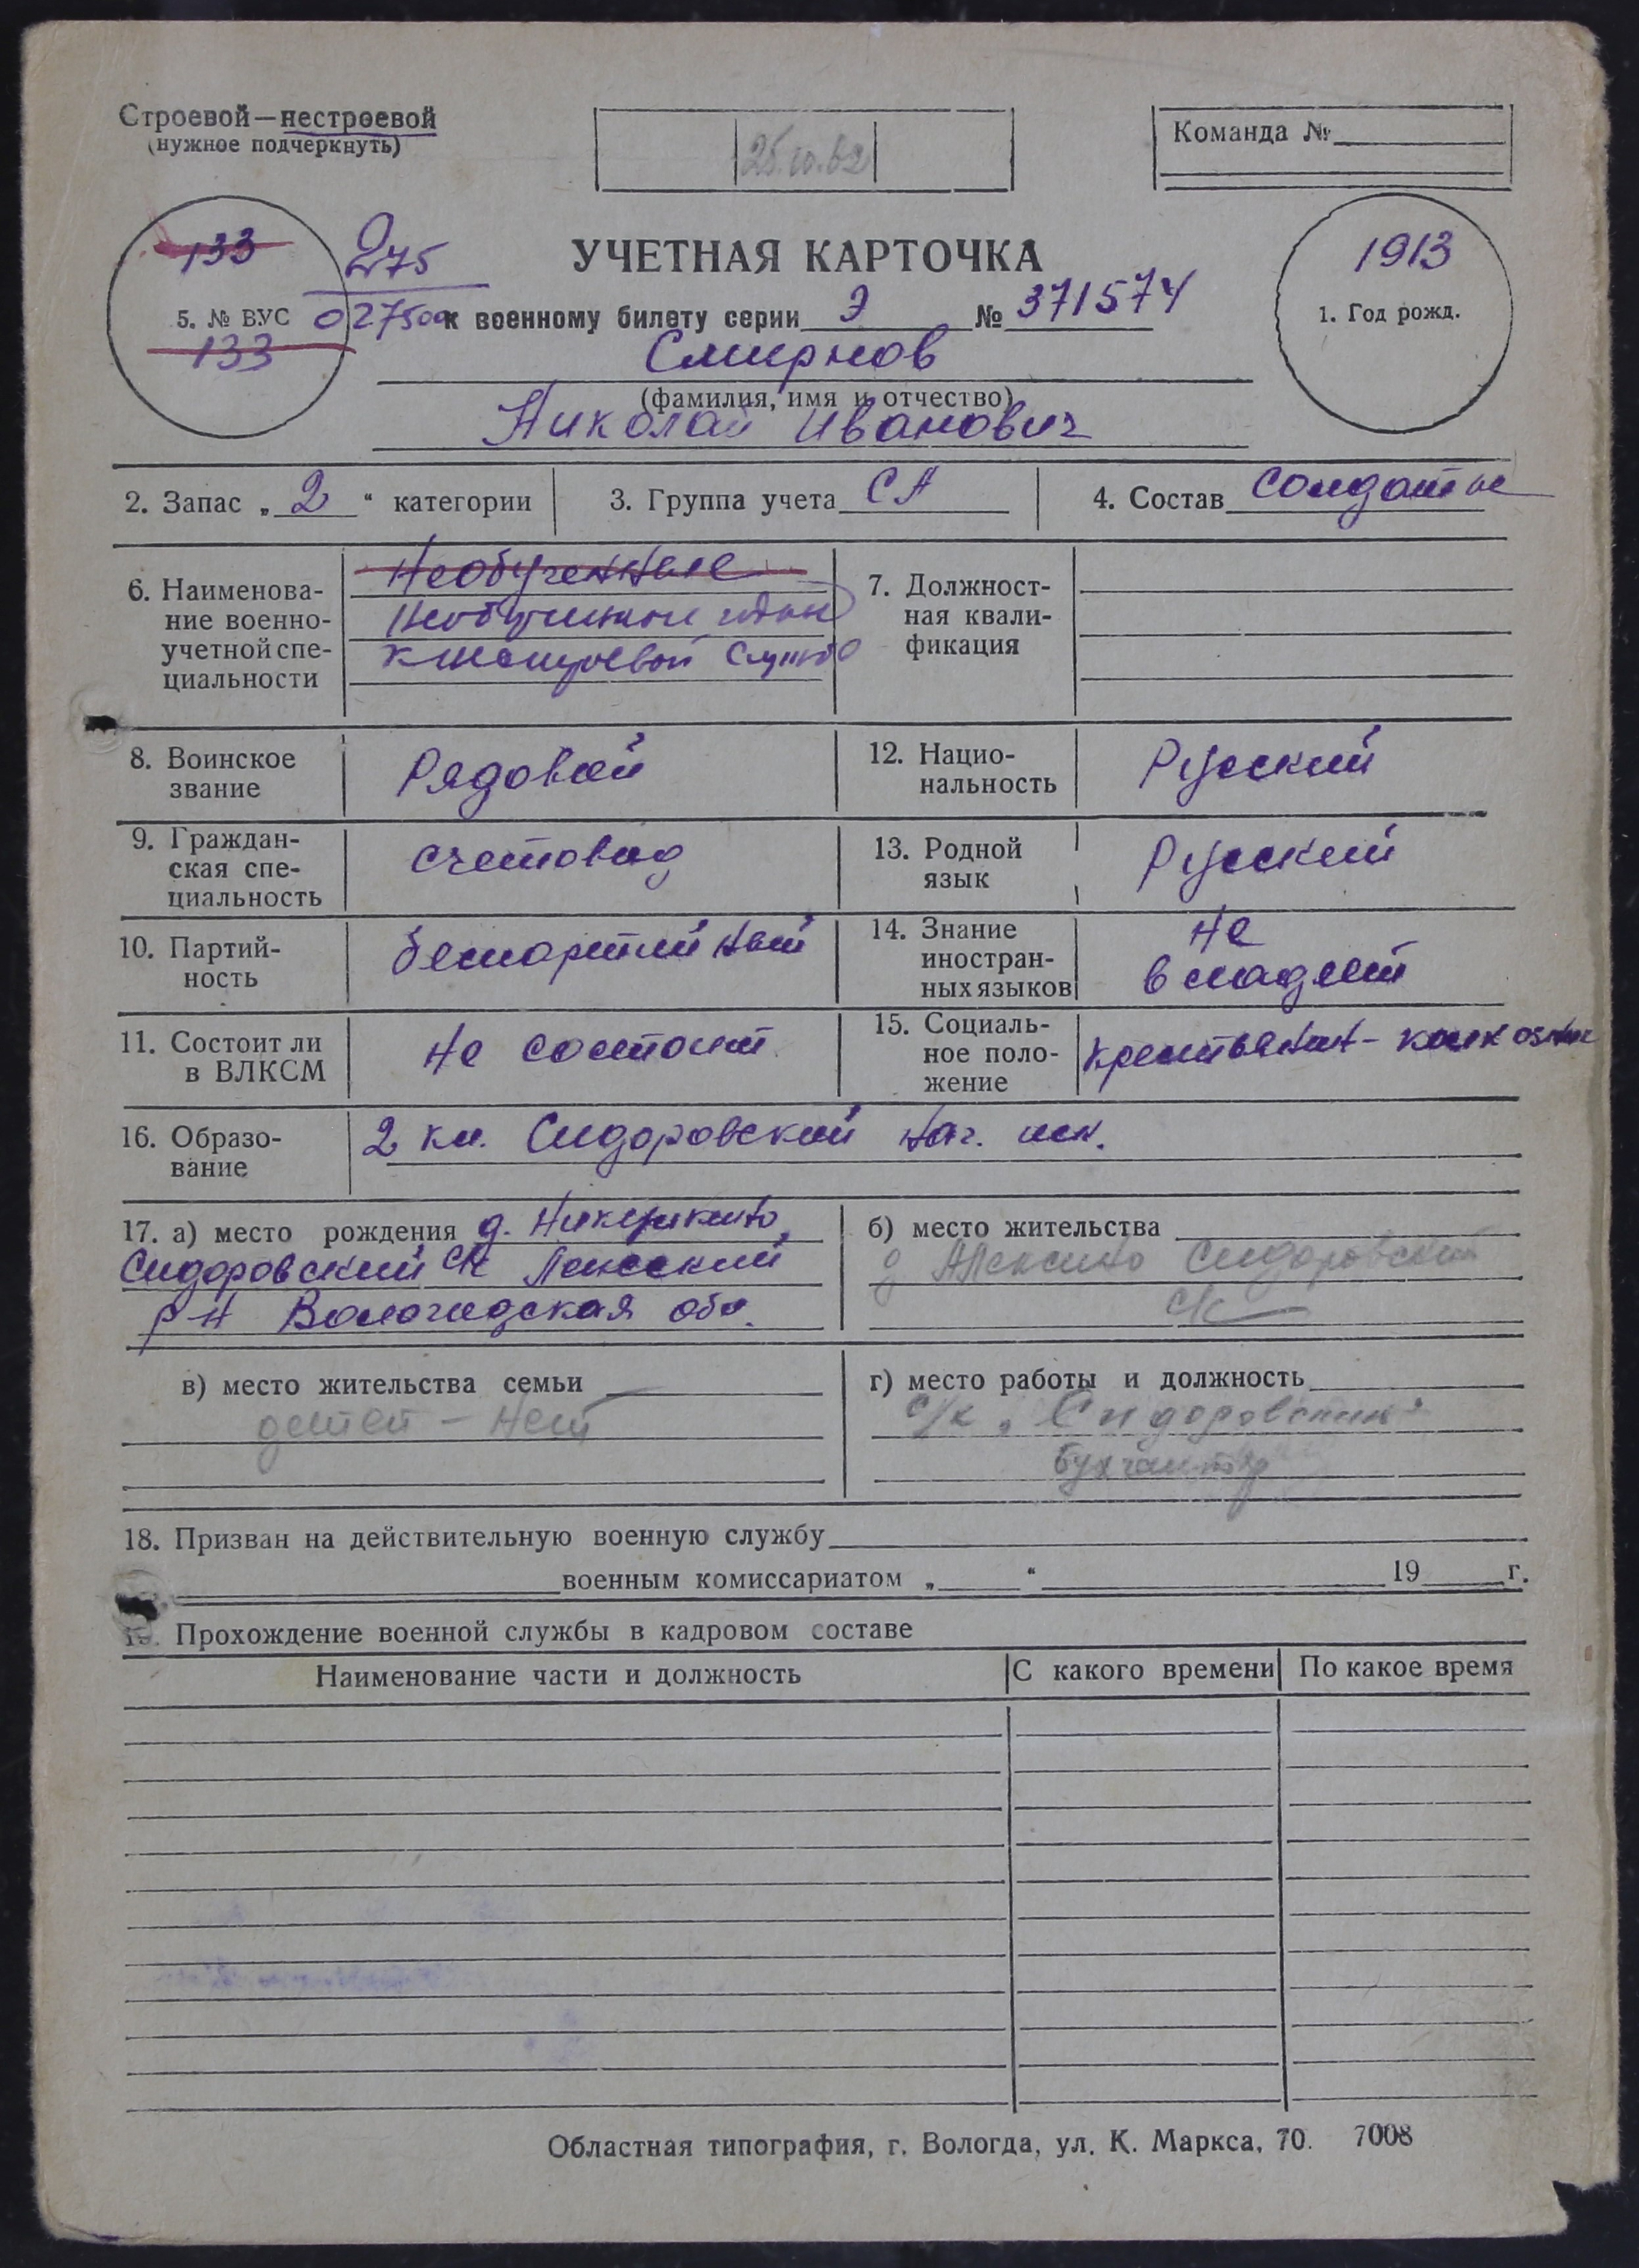 Строевой—нестроевой
(нужное подчеркнуть)
25.10.62
Команда №
133
275
УЧЕТНАЯ КАРТОЧКА
1913
5. № ВУС 027500 к военному билету серии Э № 371574
1. Год рожд.
133
Смирнов
(фамилия, имя и отчество)
Николай Иванович
2. Запас „2“ категории
3. Группа учета СА
4. Состав солдаты
6. Наименова-
ние военно-
учетной спе-
циальности
Необученные
Необученные, годные
к нестроевой службе
7. Должност-
ная квали-
фикация
8. Воинское
звание
Рядовой
12. Нацио-
нальность
Русский
9. Граждан-
ская спе-
циальность
счетовод
13. Родной
язык
Русский
10. Партий-
ность
беспартийный
14. Знание
иностран-
ных языков
не
владеет
11. Состоит ли
в ВЛКСМ
не состоит
15. Социаль-
ное поло-
жение
крестьянин-колхозник
16. Образо-
вание
2 кл. Сидоровский нач. шк.
17. а) место рождения д.
Сидоровский с/с
р-н Вологодская обл.
б) место жительства
д Алексино Сидоровский
с/с
в) место жительства семьи
детей - нет
г) место работы и должность
с/х „Сидоровский"
бухгалтер
18. Призван на действительную военную службу
военным комиссариатом „ “ 19 г.
19. Прохождение военной службы в кадровом составе
Наименование части и должность
С какого времени
По какое время
Областная типография, г. Вологда, ул. К. Маркса, 70. 7008